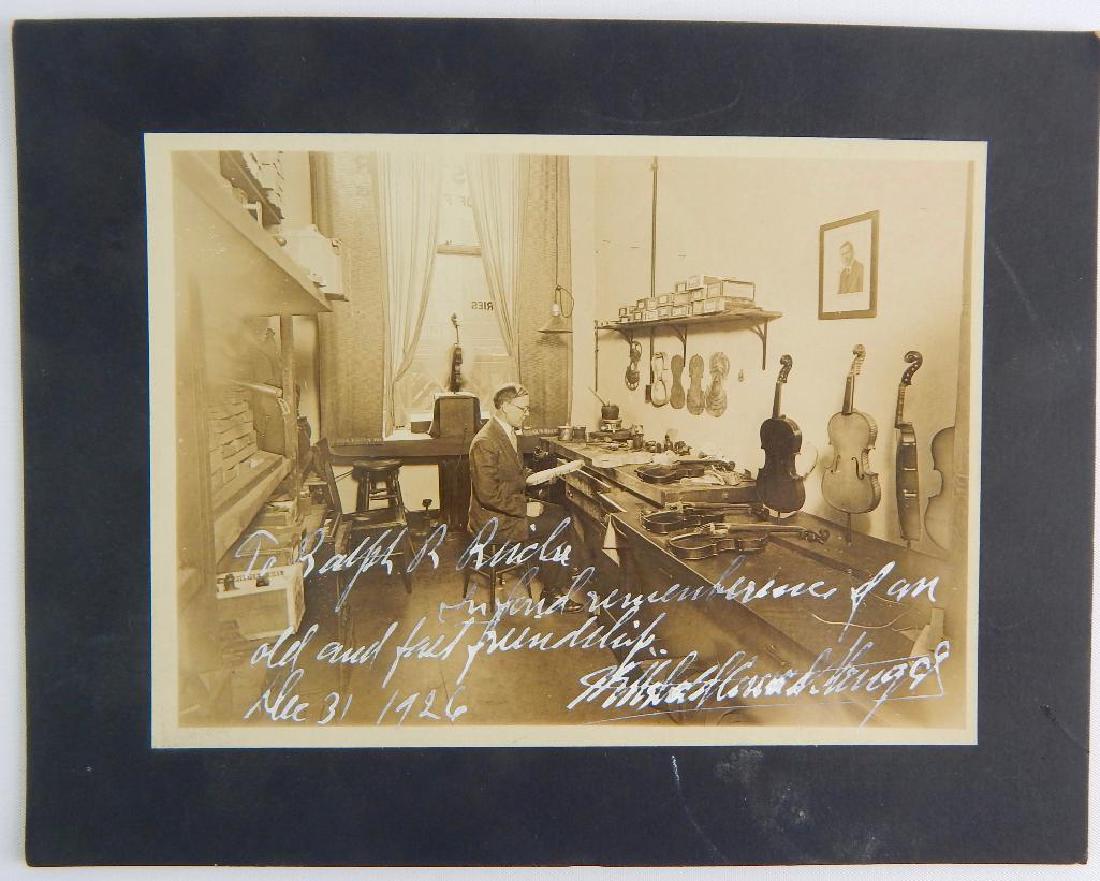 OF F
RIES
To Ralph R
in fond remembrance of an
old and fast friendship.
Dec 31 1926